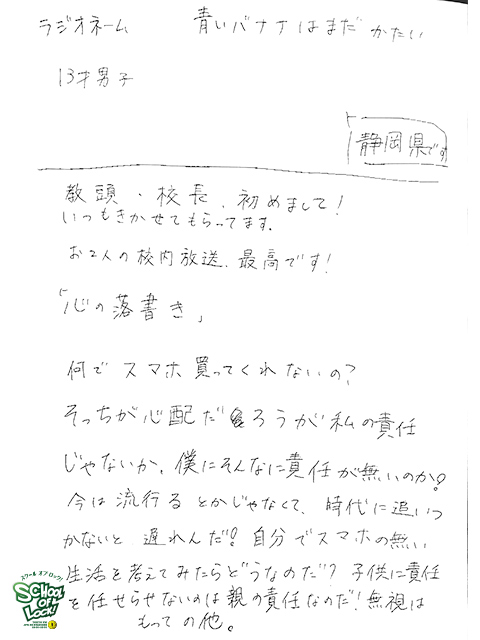 ラジオネーム　青いバナナはまだかたい
13才男子
静岡県です
教頭・校長、初めまして!
いつもきかせてもらってます。
お2人の校内放送、最高です!
「心の落書き」
何でスマホ買ってくれないの?
そっちが心配だろうが私の責任
じゃないか。僕にそんなに責任が無いのか?
今は流行るとかじゃなくて、時代に追いつ
かないと遅れんだ!自分でスマホの無い
生活を考えてみたらどうなのだ?子供に責任
を任せらせないのは親の責任なのだ!無視は
もっての他。
スクールオブロック!
SCHOOL
OF
LOCK!